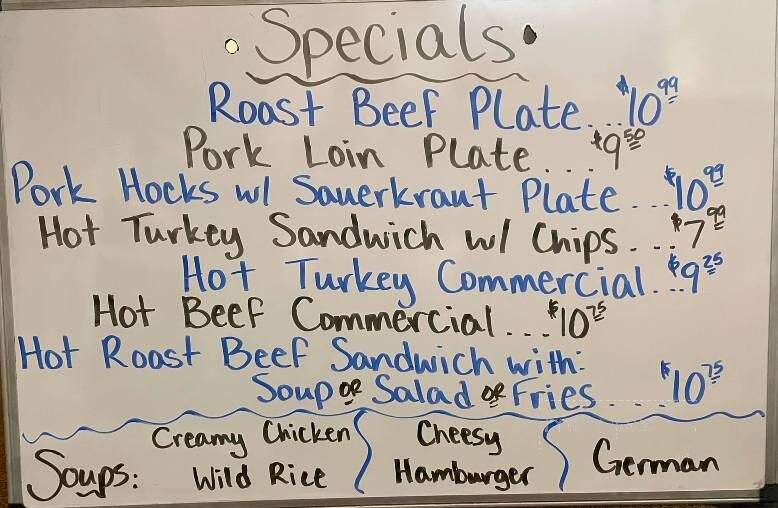 Specials
Roast Beef Plate....$10.99
Pork Loin Plate....$9.50
Pork Hocks w/ Sauerkraut Plate...$10.99
Hot Turkey Sandwich w/ Chips....$7.99
Hot Turkey Commercial...$9.25
Hot Beef Commercial...$10.75
Hot Roast Beef Sandwich with:
Soup or Salad or Fries....$10.75
Soups: Creamy Chicken Wild Rice
Cheesy Hamburger
German